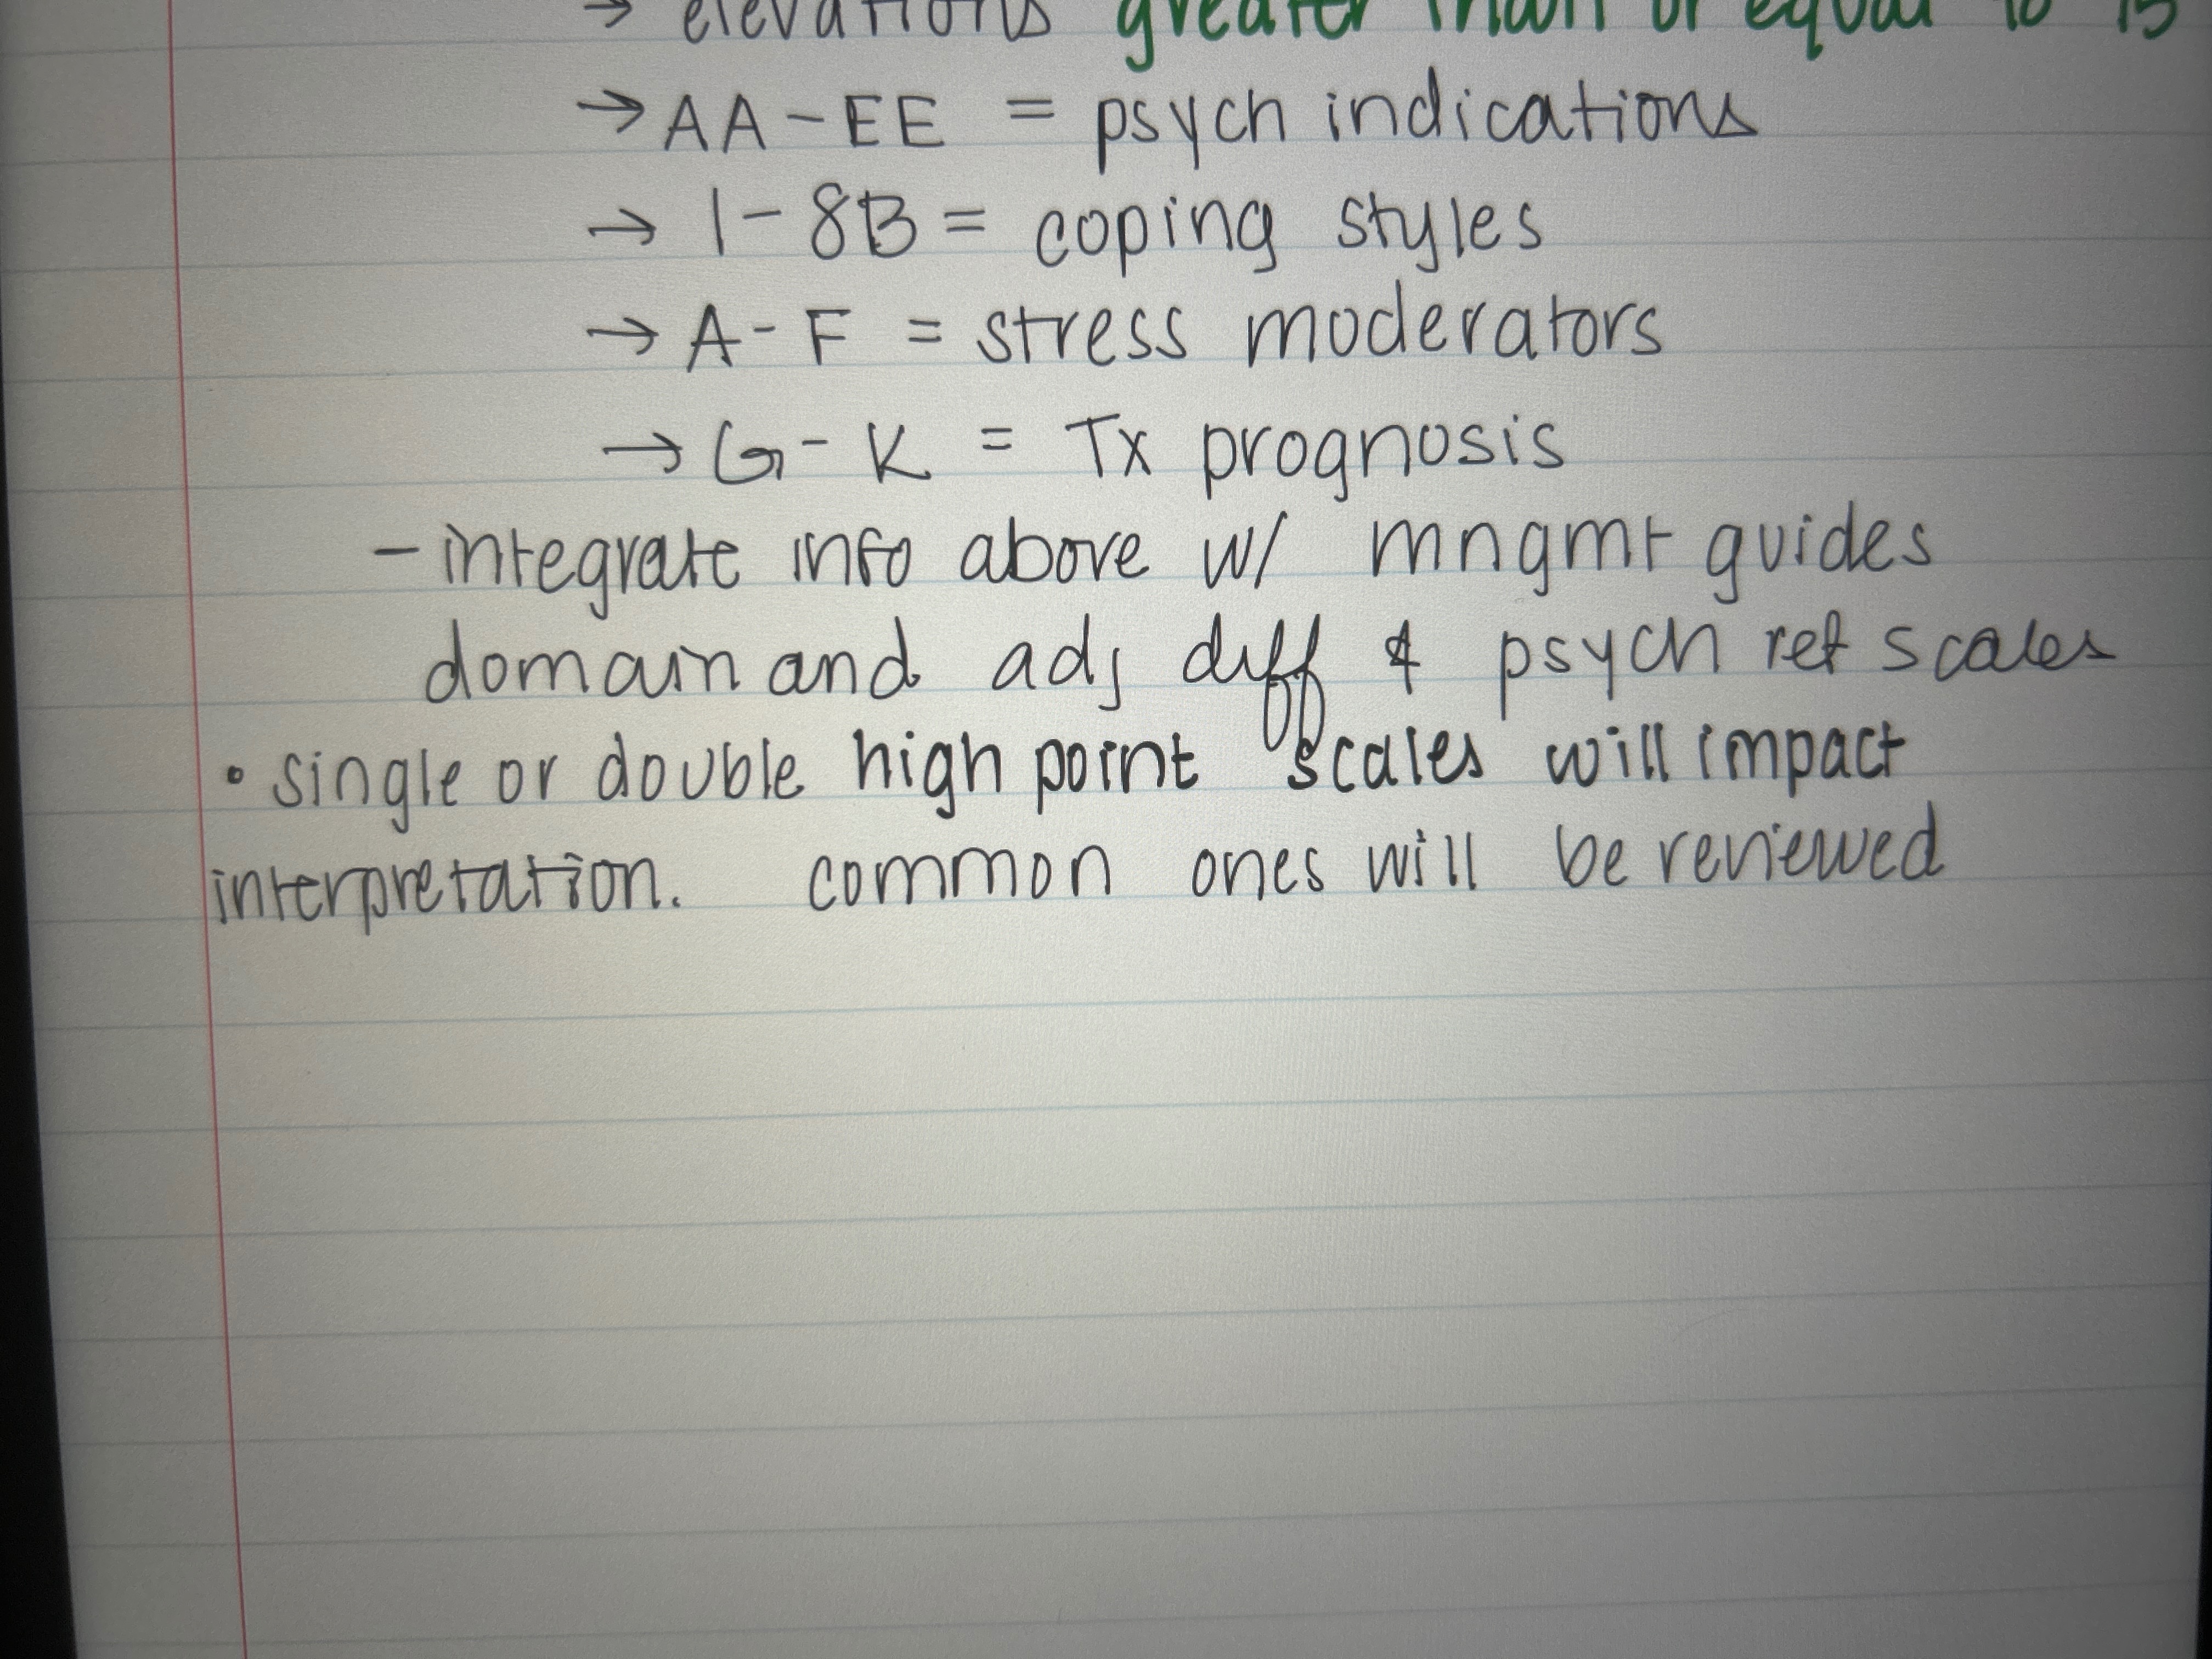 → elevations greater than or equal to 75
→ AA - EE = psych indications
→ 1 - 8B = coping styles
→ A - F = stress moderators
→ G - K = Tx prognosis
- integrate info above w/ mngmt guides
domain and adj diff & psych ref scales
• single or double high point scales will impact
interpretation. common ones will be reviewed